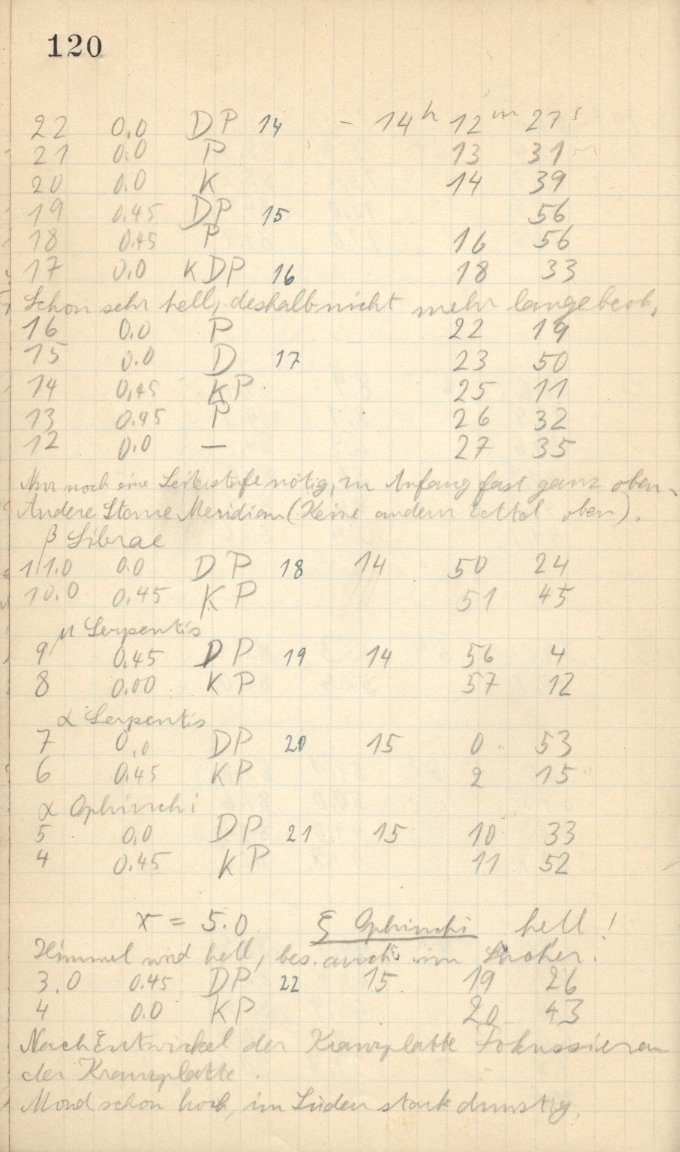 120
22 0.0 DP 14 - 14h 12m 27s
21 0.0 P 13 31
20 0.0 K 14 39
19 0.45 DP 15 56
18 0.45 P 16 56
17 0.0 KDP 16 18 33
Schon sehr hell, deshalb nicht mehr lange beob.
16 0.0 P 22 19
15 0.0 D 17 23 50
14 0,45 KP 25 11
13 0.45 P 26 32
12 0.0 — 27 35
Nur noch eine Leiterstufe nötig, zu Anfang fast ganz oben.
Andere Sterne Meridian (Keine andern oben).
β Librae
11.0 0.0 DP 18 14 50 24
10.0 0,45 KP 51 45
μ Serpentis
9 0.45 DP 19 14 56 4
8 0.00 KP 57 12
α Serpentis
7 0.0 DP 20 15 0 53
6 0.45 KP 2 15
α Ophiuchi
5 0.0 DP 21 15 10 33
4 0.45 KP 11 52
x = 5.0 ξ Ophiuchi hell!
Himmel wird hell, bes. auch im Sucher.
3.0 0.45 DP 22 15 19 26
4 0.0 KP 20 43
Nach Entwickel der Kranzplatte Fokussieren
der Kranzplatte.
Mond schon hoch, im Süden stark dunstig.